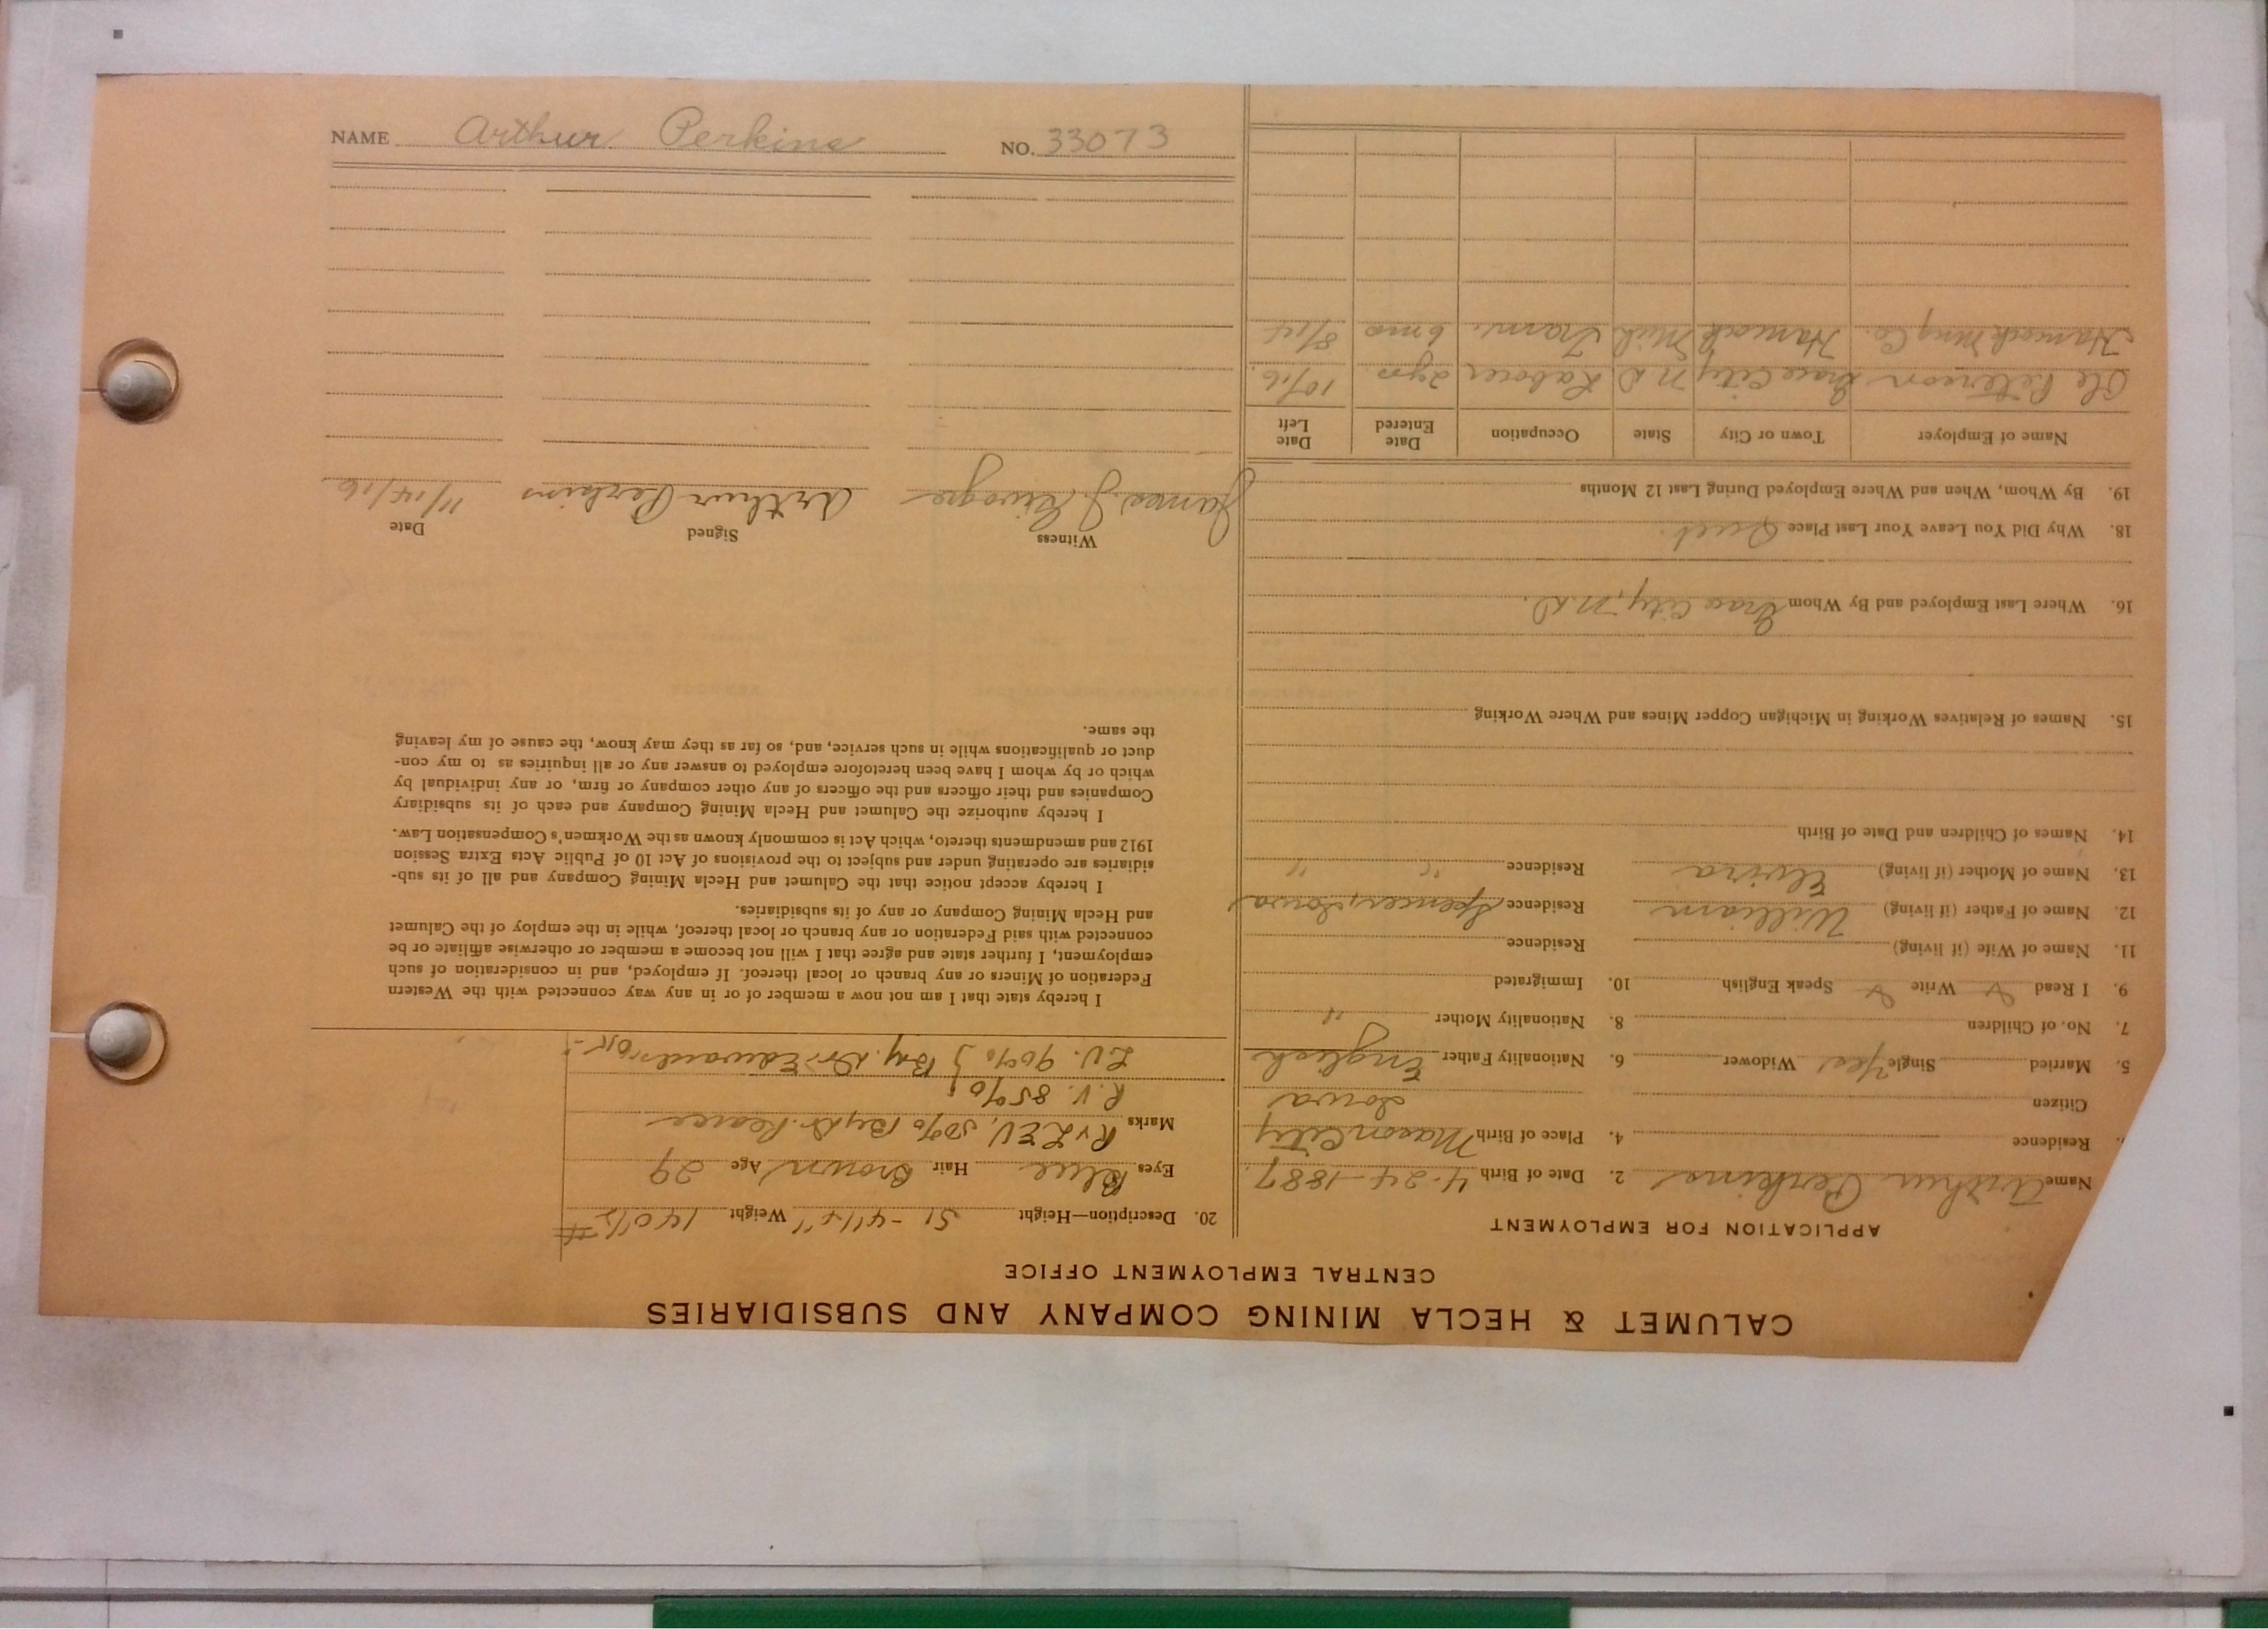 NAME Arthur Perkins NO. 33073
CALUMET & HECLA MINING COMPANY AND SUBSIDIARIES
CENTRAL EMPLOYMENT OFFICE
APPLICATION FOR EMPLOYMENT
Name Arthur Perkins 2. Date of Birth 4-24-1887.
Residence 4. Place of Birth Mason City
Citizen Iowa
5. Married Single Yes Widower 6. Nationality Father English
7. No. of Children 8. Nationality Mother "
9. I Read Write Speak English 10. Immigrated
11. Name of Wife (if living) Residence
12. Name of Father (if living) William Residence Spencer, Iowa
13. Name of Mother (if living) Elvira Residence " "
14. Names of Children and Date of Birth
15. Names of Relatives Working in Michigan Copper Mines and Where Working
16. Where Last Employed and By Whom Grace City, N.D.
18. Why Did You Leave Your Last Place Quit.
19. By Whom, When and Where Employed During Last 12 Months
Name of Employer Town or City State Occupation Date Entered Date Left
Ole Peterson Grace City N D Laborer 2yrs. 10/16.
Hancock Mng Co. Hancock Mich Tram. 6 mos 8/14
20. Description—Height 5' - 4 1/2" Weight 140 1/2 #
Eyes Blue Hair Brown Age 29
Marks R & L E V, 50% By Dr. Pearce
R.V. 85%
L.V. 90% } By. Dr. Edwards
I hereby state that I am not now a member of or in any way connected with the Western
Federation of Miners or any branch or local thereof. If employed, and in consideration of such
employment, I further state and agree that I will not become a member or otherwise affiliate or be
connected with said Federation or any branch or local thereof, while in the employ of the Calumet
and Hecla Mining Company or any of its subsidiaries.
I hereby accept notice that the Calumet and Hecla Mining Company and all of its sub-
sidiaries are operating under and subject to the provisions of Act 10 of Public Acts Extra Session
1912 and amendments thereto, which Act is commonly known as the Workmen's Compensation Law.
I hereby authorize the Calumet and Hecla Mining Company and each of its subsidiary
Companies and their officers and the officers of any other company or firm, or any individual by
which or by whom I have been heretofore employed to answer any or all inquiries as to my con-
duct or qualifications while in such service, and, so far as they may know, the cause of my leaving
the same.
Witness Signed Date
James J. Arthur Perkins 11/14/16